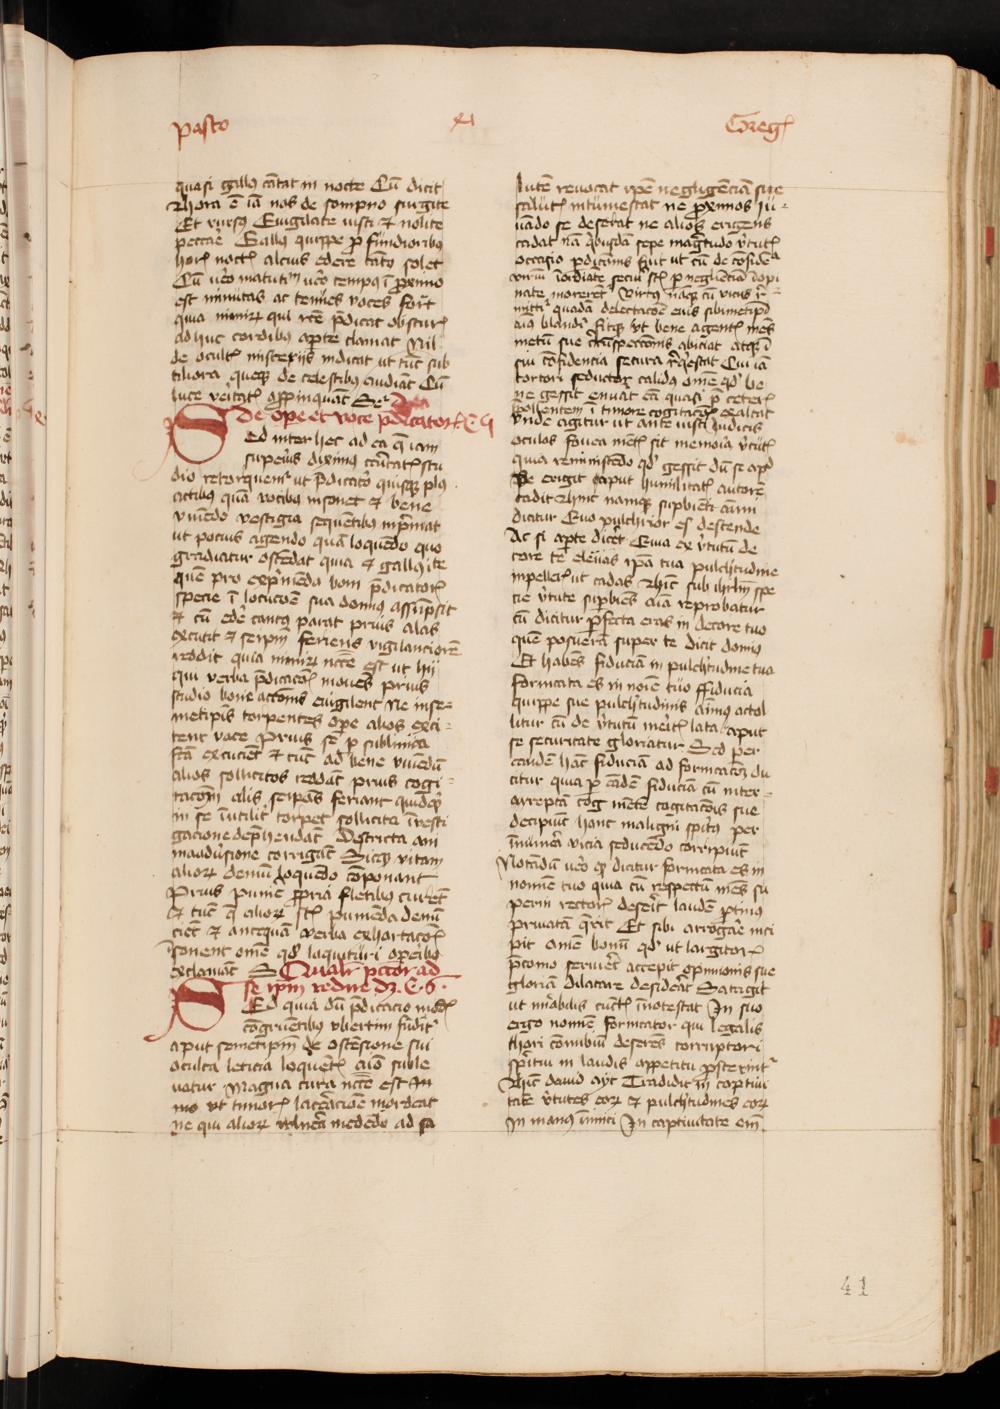 pasto xli Greg
quasi gallus cātat in nocte Cū dicit
Et rursus Euigilate iusti et nolite
peccare Gallus quippe profundioribus
hor noctis alcius edere cātus solet
Cū vero matutinū tempus
est minutas ac tenues voces format
quia nimirū qui recte predicat obscuris
adhuc cordibus aperte clamat Nil
de ocultis misterijs indicat ut tūc sub
tiliora queque de celestibus audiāt Cū
luce veritatis appropinquant
de ope et voce predicator
Sed inter hec ad ea que iam
superius diximus
dio retorquemur ut predicator quisque plus
actibus quā vocibus insonet et bene
viuēdo vestigia sequētibus inprimat
ut pocius agendo quā loquēdo quo
gradiatur ostēdat quia et gallus iste
quē pro exprimēda boni predicatoris
specie ī locucōe sua dominus assūpsit
et cū edere cantus parat prius alas
excutit et seipm feriens vigilanciorē
reddit quia nimirū necesse est ut hij
qui verba predicacōis mouēt prius
studio bone accōnis euigilent Ne in se=
metipsis torpentes ope alios exci=
tent voce Prius se per sublimia
facta excuciēt et tūc ad bene viuēdū
alios sollicitos reddāt prius cogi=
tacōm alis seipsos feriant quidquid
in se īutiliter torpet sollicita īuesti
gacione deprehendāt Destricta ani
maduersione corrigāt Sicque vitam
aliorū demū loquēdo componant
Prius punire propria fletibus curēt
Et tūc que aliorū sunt puniēda denū
ciēt et antequā verba exhortacōis
īsonent omē quod locuturi operibus
exclamāt
se ipm redire
Sed quia dum predicacio modis
congruentibus vbertim funditur
aput semetipm de ostēsione sui
oculta leticia loquētis animus suble
uatur Magna cura necesse est In
mo vt timoris laceracōe mordeat
ne qui aliorū vulnera medēdo ad sa
lutem reuocat ipse negligēciam sue
salutis intumescat ne proximos iu=
uādo se deserat ne alios erigens
cadat nā quibusdā sepe magnitudo virtutis
occasio perdicionis fuit ut cū de cōfidē
virium īordinate securi sunt per negligēciā īopi
nate morerētur Virtus namque cū viciis
quadā delectacōe eius
blandit fitque vt bene agentis mēs
metū sue circūspeccōnis abiciat atque ī
sui cōfidencia secura requiescat Cui iā
torpori seductor calidus omē quod be
ne gessit enuat eā quasi pre ceteris
pollentem ī timore cogitacōis exaltat
vnde agitur ut ante iusti iudicis
oculos fouea mētis sit memoria virtutis
quia reminiscēdo quod gessit dū se apud
se erigit aput humilitatis autorē
cadit Hinc namque superbiēti anime
dicitur Quo pulchrior es descende
Ac si aperte diceret Quia ex virtutū de
core te eleuas ipsa tua pulchritudine
inpelleris ut cadas Hinc sub ihrlm spe
cie virtute superbiēs aīa reprobatur
cū dicitur perfecta eras in decore tuo
quē posuerā super te Dicit dominus
Et habēs fiduciam in pulchritudine tua
fornicata es in noīe tuo Fiducia
quippe sue pulchritudinis animus actol
litur cū de virtutū meritis lata aput
se securitate gloriatur Sed per
eandē hāc fiduciā ad fornicacōm du
citur quia per eādē fiduciā cū inter=
arreptā cog mētē cogitacōis sue
decipiūt hanc maligni spiritus per
īnumera vicia seducēdo corripiūt
Notādū vero quod dicitur fornicata es in
nomine tuo quia cū respectum mēs su
perni rectoris deserit laudē protinus
priuatā querit Et sibi arrogare inci
pit omē bonū quod ut largitoris
preconio seruiret accepit opinionis sue
gloriā dilatare desiderat Satagit
ut mirabilis cunctis īnotescat In suo
ergo nomine fornicator qui legalis
thori connubiū deserēs corruptori
spiritui in laudis appetitu prosternit
Hinc dauid ayt Tradidit in captiui
tatē virtutes eorū et pulchritudines eorū
In manus inimici In captiuitate enim
41